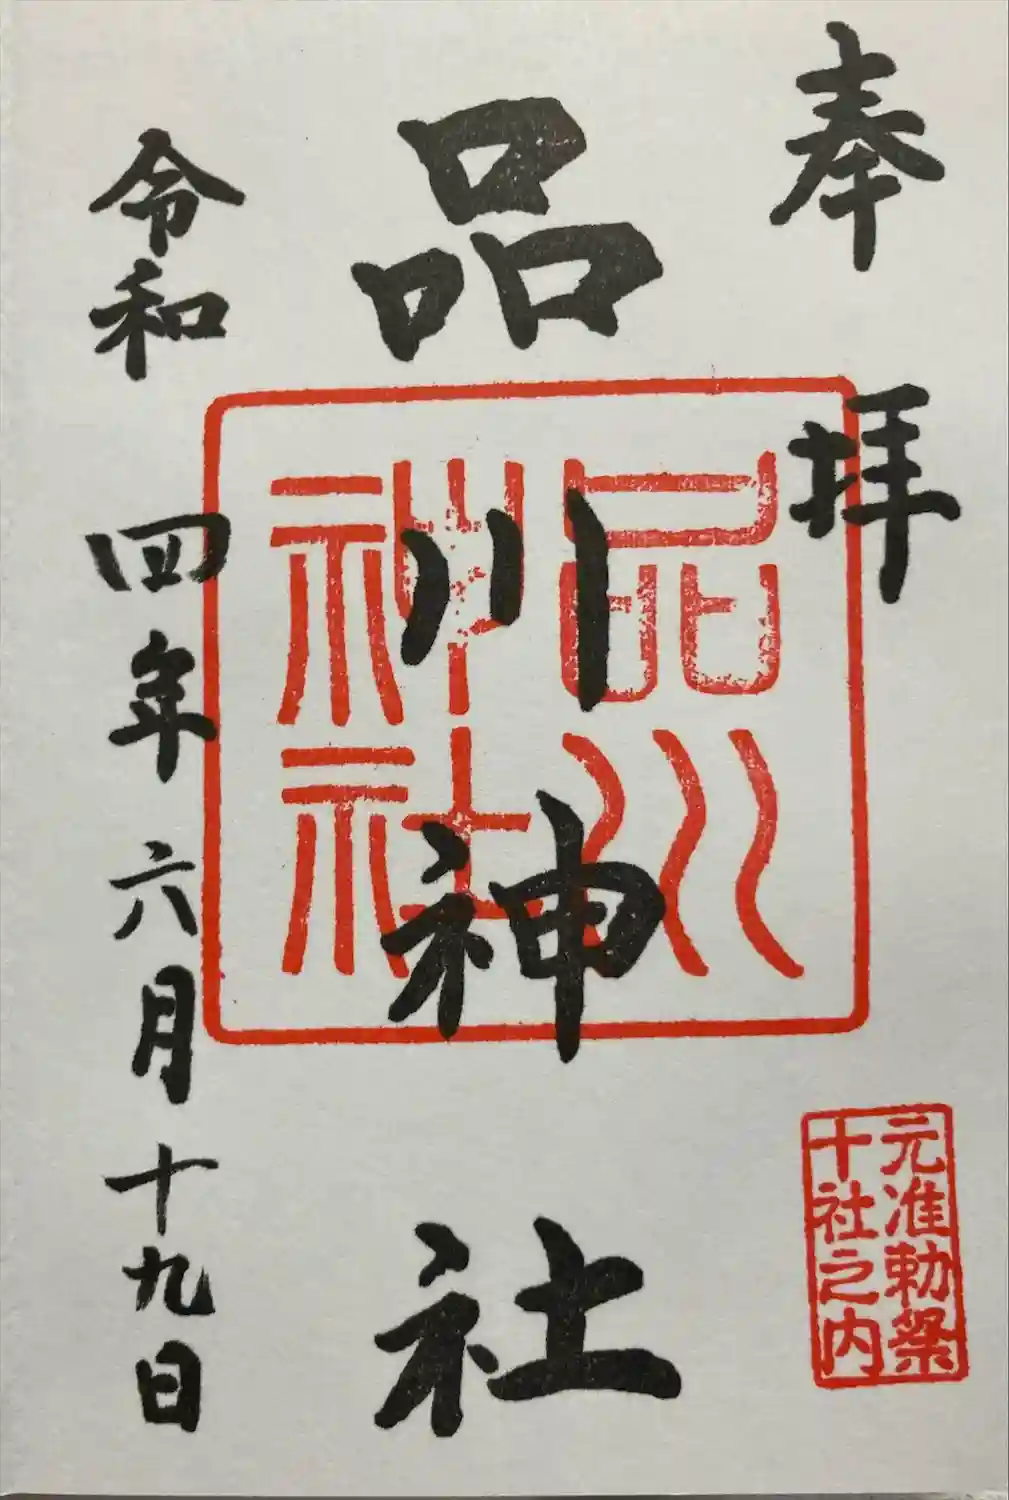 奉拝
元准勅祭
十社之内
品川神社
品川
神社
令和四年六月十九日